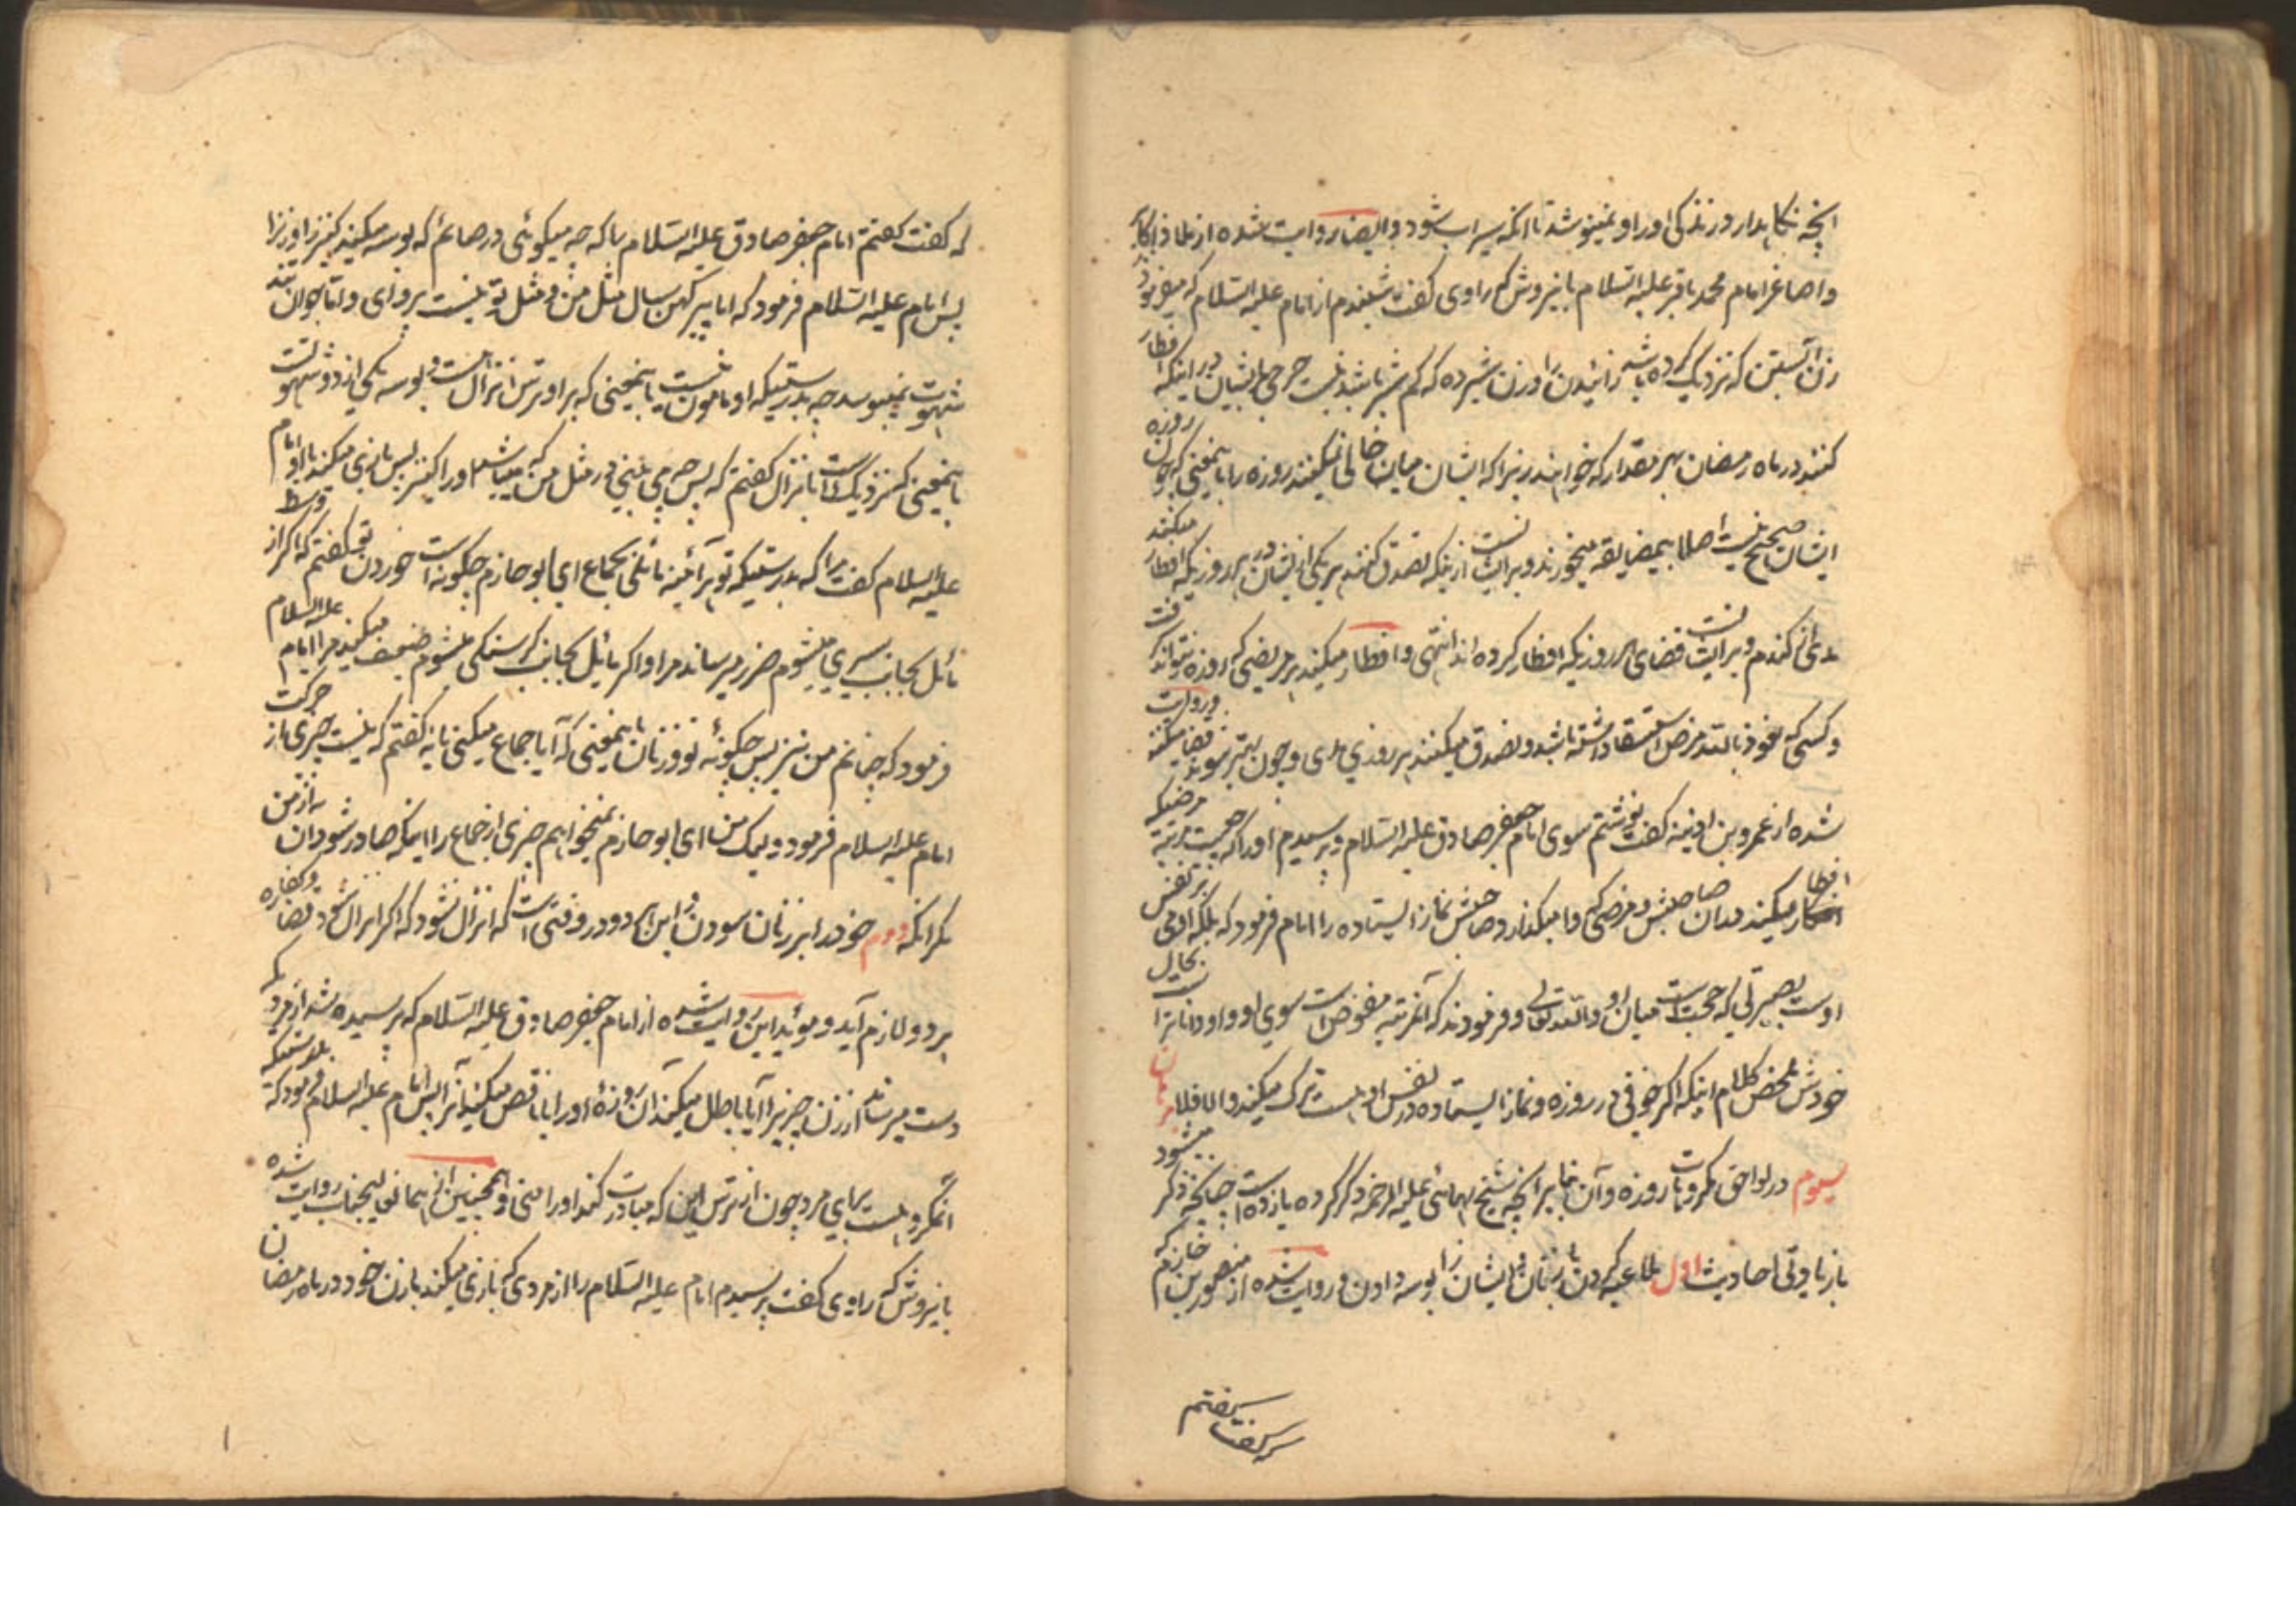 آنچه نگاهدارد زندگی او را و نمینوشد تا انکه سیراب شود و ایضا روایت شده از
و اصاغر امام محمد باقر علیه السلام باینروش که راوی گفت شنیدم از امام علیه السلام که میفرمود
زن آبستن که نزدیک کرده باشد زائیدن را و زن شیرده که کم شیر باشد نیست حرجی بر ایشان در اینکه افطار
کنند در ماه رمضان بهر مقدار که خواهند زیرا که ایشان میان خالی نمیکنند روزه را باینمعنی که چون روزه
ایشان صحیح نیست اصلا بیمضایقه میخورند و بر ایشانست اینکه تصدق کنند هر یکی از ایشان در هر روزیکه افطار میکنند
مدی از گندم و بر ایشانست قضای هر روزیکه افطار کرده اند انتهی و افطار میکند هر مریضی که روزه نتواند گرفت
و کسی که نعوذ بالله مرض استسقا داشته باشد و تصدق میکنند هر روزی مدی و چون بهتر شوند قضا میکنند و روایت
شده از عمرو بن اذینه گفت نوشتم سوی امام جعفر صادق علیه السلام و پرسیدم او را که چیست مرتبه مرضیکه
افطار میکند بدان صاحبش و مرضی که وامیگذارد صاحبش نماز ایستاده را امام فرمود که بلکه آدمی بر نفس
اوست بصیرتی که حجت است میان او و الله تعالی و فرمودند که آنمرتبه مفوض است سوی او و او داناتر است بحال
خودش ملخص کلام اینکه اگر خوفی در روزه و نماز ایستاده در نفس او هست ترک میکند و الا فلا
سیوم در لواحق مکروهات روزه و آن بنابر آنچه شیخ بهائی علیه الرحمه ذکر کرده یازده است چنانچه ذکر میشود
باز یادتی احادیث اول ملاعبه کردن با زنان و ایشان را بوسه دادن و روایت شده از منصور بن حازم که
که گفت گفتم
که گفت گفتم امام جعفر صادق علیه السلام را که چه میگوئی در صائم که بوسه میکند کنیز را و زن را
پس امام علیه السلام فرمود که اما پیر کهن سال مثل من و مثل تو نیست پروای و اما جوان
شهوت نمیبوسد چه بدرستیکه او مامون نیست باینمعنی که بر او ترس انزال است و بوسه یکی از دو شهوتست
باینمعنی که نزدیک است بانزال گفتم که پس چه می بینی در مثل من که میباشد او را کنیز پس بازی میکند با او امام
علیه السلام گفت مرا که بدرستیکه تو هر آئینه مائلی بجماع ای ابو حازم چگونه است خوردن تو گفتم که اگر از وسط
مائل بجانب سیری میشوم ضرر میرساند مرا و اگر مائل بجانب گرسنگی میشوم ضعیف میکند مرا امام علیه السلام
فرمود که چنانم من نیز پس چگونه تو و زنان باینمعنی که آیا جماع میکنی یا نه گفتم که نیست چیزی از حرکت
امام علیه السلام فرمود و لیک من ای ابو حازم نمیخواهم چیزی از جماع را اینکه صادر شود آن از من
مگر آنکه دوم خود را بر زنان سودن و این هر دو در وقتی است که انزال نشود که اگر انزال شود قضا و کفاره
هر دو لازم آید و مؤید این روایت شده از امام جعفر صادق علیه السلام که پرسیده شد از مردیکه
دست میرساند از زن چیزیرا آیا باطل میکند آن روزه او را یا ناقص میکند آنرا پس امام علیه السلام فرمود که بدرستیکه
آن مکروه است برای مرد جوان از ترس این که مبادرت کند او را منی و همچنین از همانموالیجناب روایت شده
باینروش که راوی گفت پرسیدم امام علیه السلام را از مردی که بازی میکند با زن خود در ماه رمضان